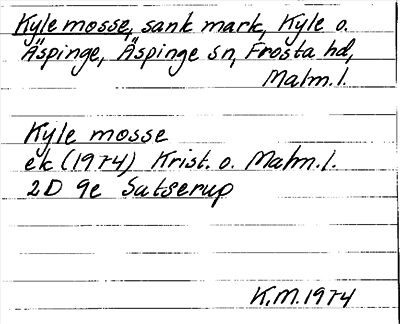 Kyle mosse, sank mark, Kyle o.
Äspinge, Äspinge sn, Frosta hd,
Malm.l.
Kyle mosse
ek (1974) Krist. o. Malm.l.
2D 9e Satserup
K.M.1974